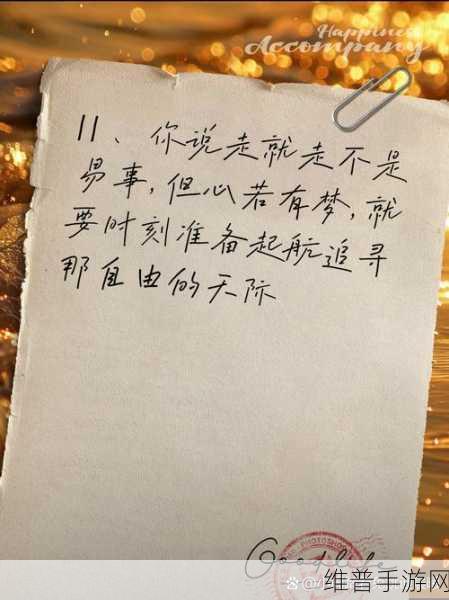 Happiness
Accompany
11、你说走就走不是
易事,但心若有梦,就
要时刻准备起航追寻
那自由的天际
Good life
维普手游网